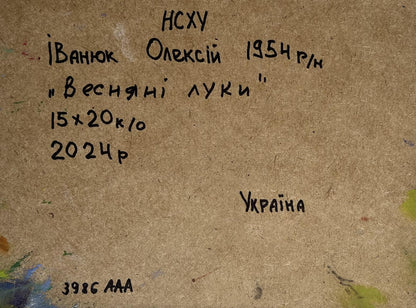 НСХУ
Іванюк Олексій 1954 р/н
„Весняні луки"
15х20 к/о
2024р
Україна
3986 ААА